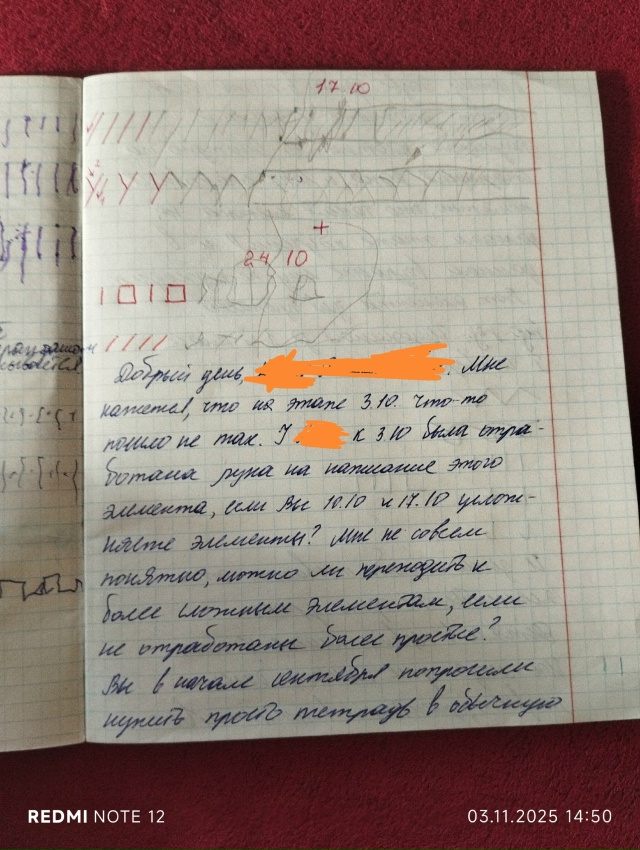 17 10
24 10
Добрый день, . Мне
кажется, что на этапе 3.10. что-то
пошло не так. У к 3.10 была отра-
ботана рука на написание этого
элемента, если Вы 10.10 и 17.10 услож-
няете элементы? Мне не совсем
понятно, можно ли переходить к
более сложным элементам, если
не отработаны более простые?
Вы в начале сентября попросили
купить просто тетрадь в обычную
REDMI NOTE 12
03.11.2025 14:50